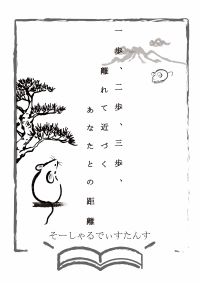 一歩、二歩、三歩、
離れて近づく
あなたとの距離
そーしゃるでぃすたんす